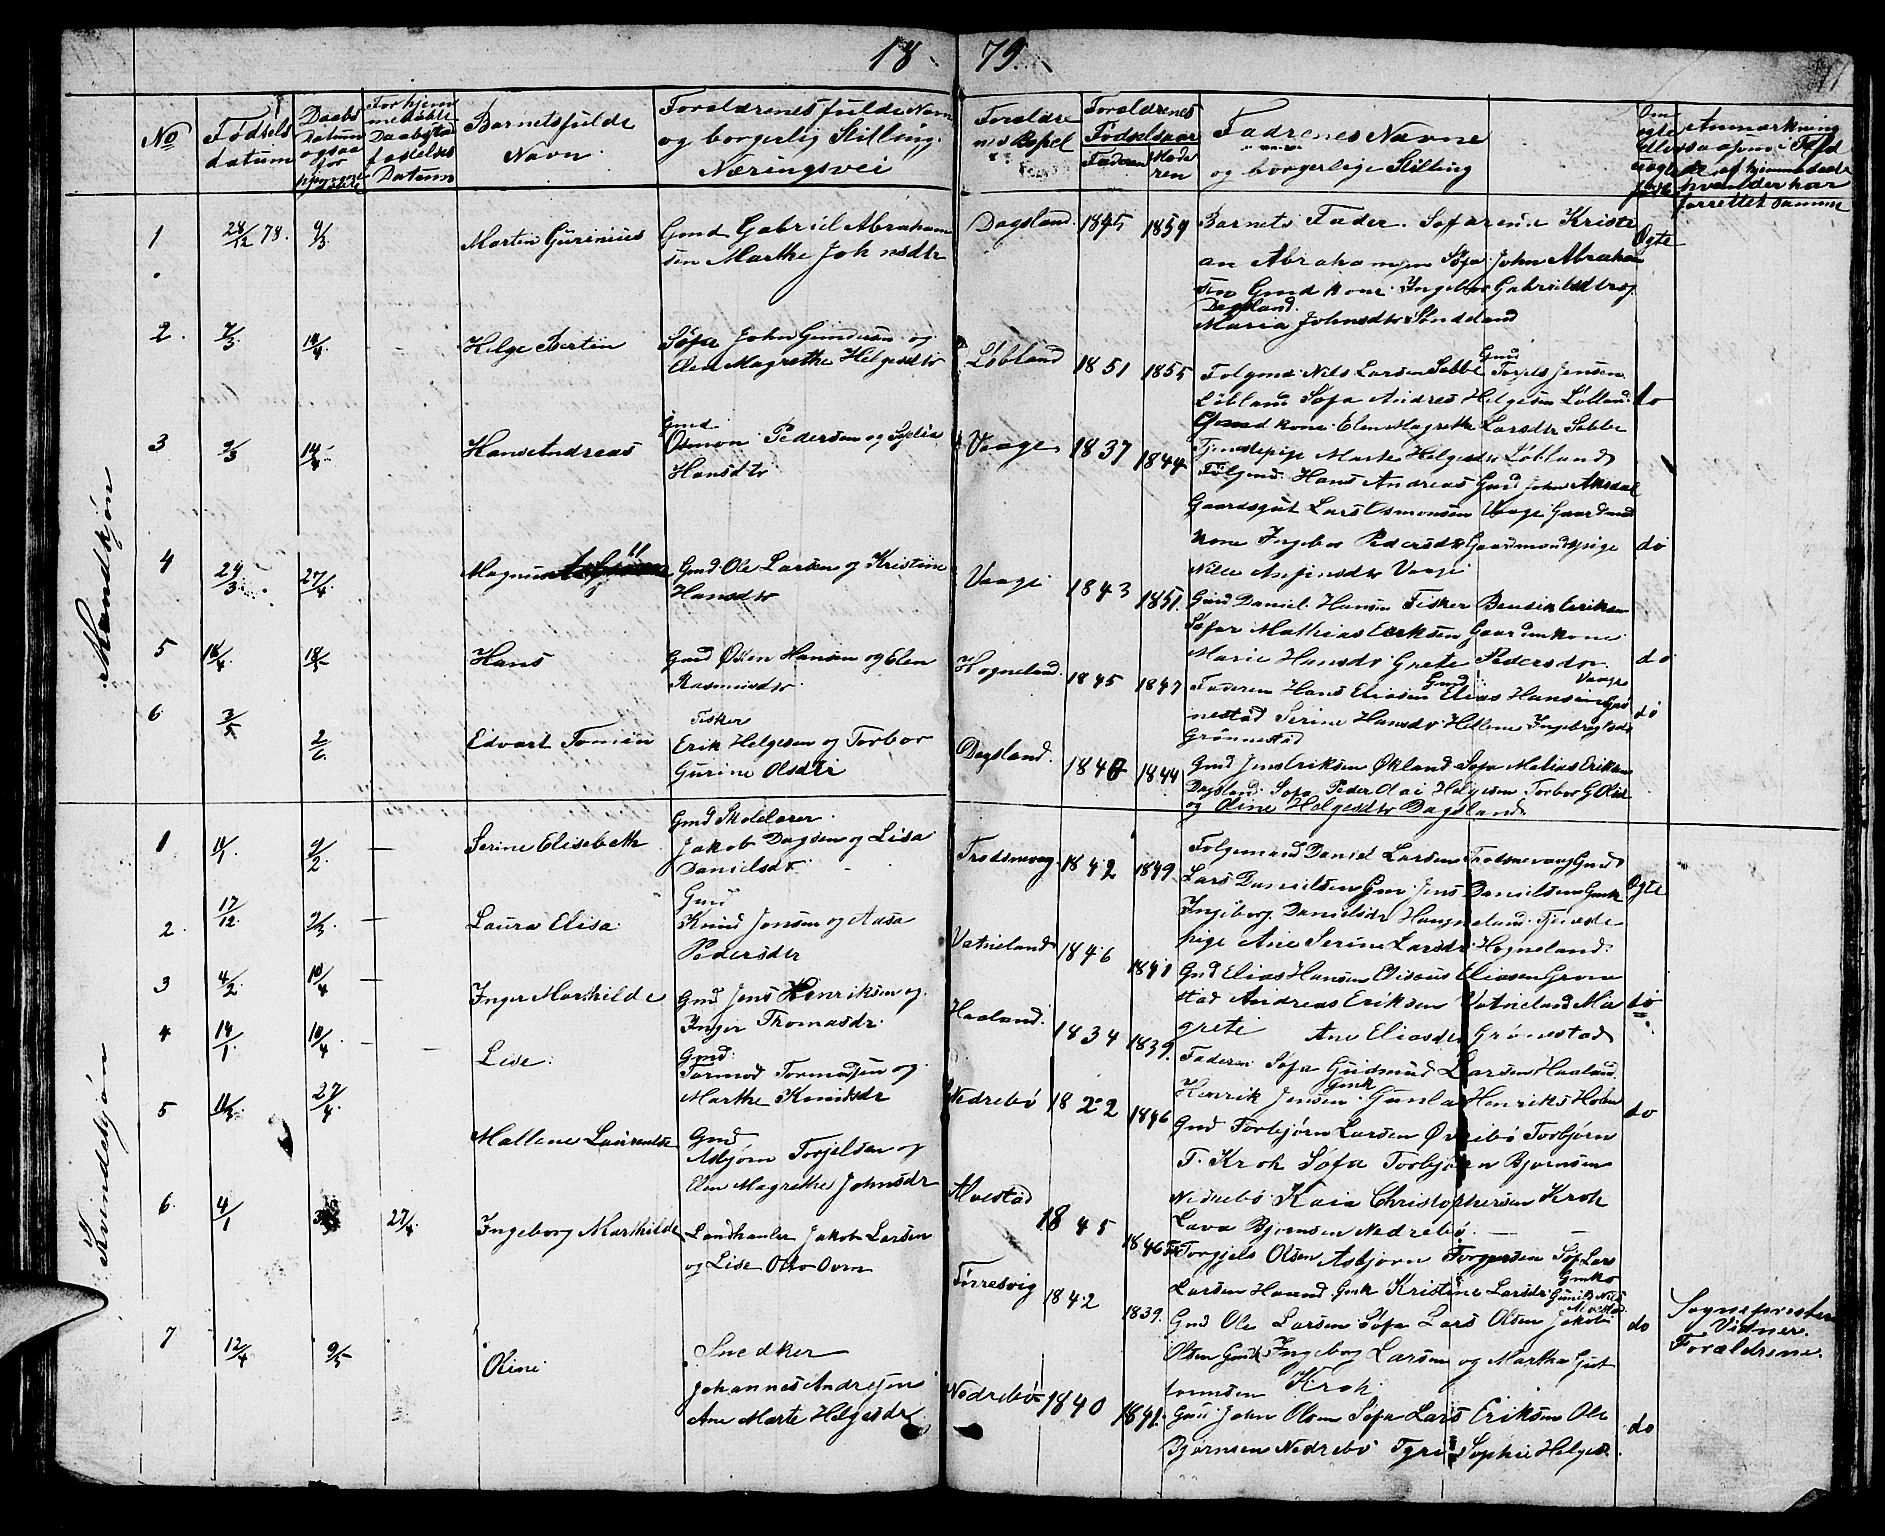 18 79.
77
No
Fødsels datum
Daabs Datum ogsaa for hjemmedøbte
For hjemmedøbte Daabsstadfæstelses Datum
Barnets fulde Navn
Forældrenes fulde Navn og borgerlig Stilling. Næringsvei
Forældrenes Bopel
Forældrenes Fødselsaar
Faderen
Moderen
Fadrenes Navne og borgerlige Stilling
Om ægte eller uægte født
Anmærkning saasom i Tilfælde af hjemmedøb hvem der har forrettet samme
Mandkjøn
1 28/12 78. 9/3 Martin Gurinius
Gmd Gabriel Abraham
sen Marthe Johnsdtr
Dagsland 1845 1859
Barnets Fader. Søfarene Kristi
an Abrahamsen Søfa John Abraham
sen Gmd kone Ingebor Gabrielsdtr og
Dagsland.
Maria Johnsdtr Søndeland
Ægte
2. 7/3 14/4 Helge Bertin
Søfa John Gundersen og
Elen Magrethe Helgesdtr
Løbland 1851 1855
Gmd
Følgmd Nils Larsen Sebbe Torjels Jensen
Løbland Søfa Andres Helgesen Løbland
Gmd kone Elen Magrethe Larsdtr Sebbe
Tjenestepige Marte Helgesdtr Løbland
do
3 9/3 14/4 Hans Andreas
Gmd
Osmon Pedersen og
Hansdtr
Vaage 1837 1844
Følgmd Hans Andreas Gmd John Aksdal
Gaardsgut Lars Osmonsen Vaage Gaardmd
kone Ingebor Pedersdtr Gaardmandspige
Nille Anfinsdtr Vaage
do
4 24/3 27/4 Magnus
Gmd Ole Larsen og Kristine
Hansdtr
Vaage 1843 1851.
Gmd Daniel Hansen Fisker Bendik Eriksen
Søfar Mathias Eriksen Gaardm kone
Marie Hansdr Grete Pedersdtr
Vaage
do
5 14/4 18/5 Hans
Gmd Østen Hansen og Elen
Rasmusdtr
Hogneland 1845 1847
Gmd
Faderen Hans Eliasen Elias Hansen Grø
nestad Serine Hansdr Hellene Ingebregtsdr
Grønnestad
do
6 3/5 2/6 Edvart Tomin
Fisker
Erik Helgesen og Torbor
Gurine Olsdtr
Dagsland. 1840 1844
Gmd Jens Eriksen Økland Søfa Matias Eriksen
Dagsland Søfa Peder Olai Helgesen Torbor G Olsd
og Oline Helgesdtr Dagsland
Kvindekjøn
1 14/1. 9/2 — Serine Elisebeth
Gmd Skolelærer
Jakob Dagsen og Lisa
Danielsdt
1842 1849
Følgemand Daniel Larsen Gmd
Lars Danielsen Gm Jens Danielsen Gmk
Ingeborg Danielsdr Haugneland Tjeneste
pige Ane Serine Larsdr Hogneland
Ægte
2. 17/12 9/3 — Laura Elisa
Gmd
Knud Jensen og Aasa
Pedersdtr
Vatneland 1846
Gmd Elias Hansen Eliseus Eliasen Grøne
stad Andreas Eriksen Vatneland Ma
grete Ane Eliasdr Grønestad
do
3 4/2 14/4 — Inger Marthilde
Gmd Jens Henriksen og
Inger Tromasdr
Haaland. 1834 1839.
Faderen Søfa Gudmund Larsen Haaland
Gmk
Henrik Jensen Gunla Henriks Holm
4 14/1 14/4 Lise
Gmd
Tormod Tormodsen og
Marthe Knudsdr
Nedrebø 1822 1846
Gmd Torbjørn Larsen Øvrebø Torbjørn
T. Kroh Søfa Torbjørn Bjørnsen
Nedrebø Kaia Christophersen Kroh
Lava Bjørnsen Nedrebø —
do
5 11/3 27/4 Mallene Laurentse
Gmd
Asbjørn Torjelsen og
Elen Magrethe Johnsdr
Alvestad 1845 1846
Torgjels Olsen Asbjørn Torgersen Søf Lars
Larsen Gmk Kristine Larsdr
6 4/1 27/4 Ingeborg Marthilde
Landhanler Jakob Larsen
og Lise Otto Ovrn
Førresvig 1842 1839.
Gmd Ole Larsen Søfa Lars Olsen Jakob
Olsen Gmdk Ingebog Larsen og Martha Gut
tormsen Kroh
do
Sognepresten
Vidner.
Forældrene.
7 12/4 9/5 Oline
Snedker
Johannes Andrejens
Ane Marte Helgesdr
Nedrebø 1840 1841
Gmd John Olsen Søfa Lars Eriksen Ole
Bjørnsen Nedrebø Tyri Sophie Helgesd.
do